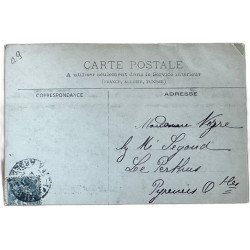 09
CARTE POSTALE
A utiliser seulement dans le Service intérieur
(FRANCE, ALGÉRIE, TUNISIE)
CORRESPONDANCE
ADRESSE
Madame
Le Perthus
Pyrénées O les